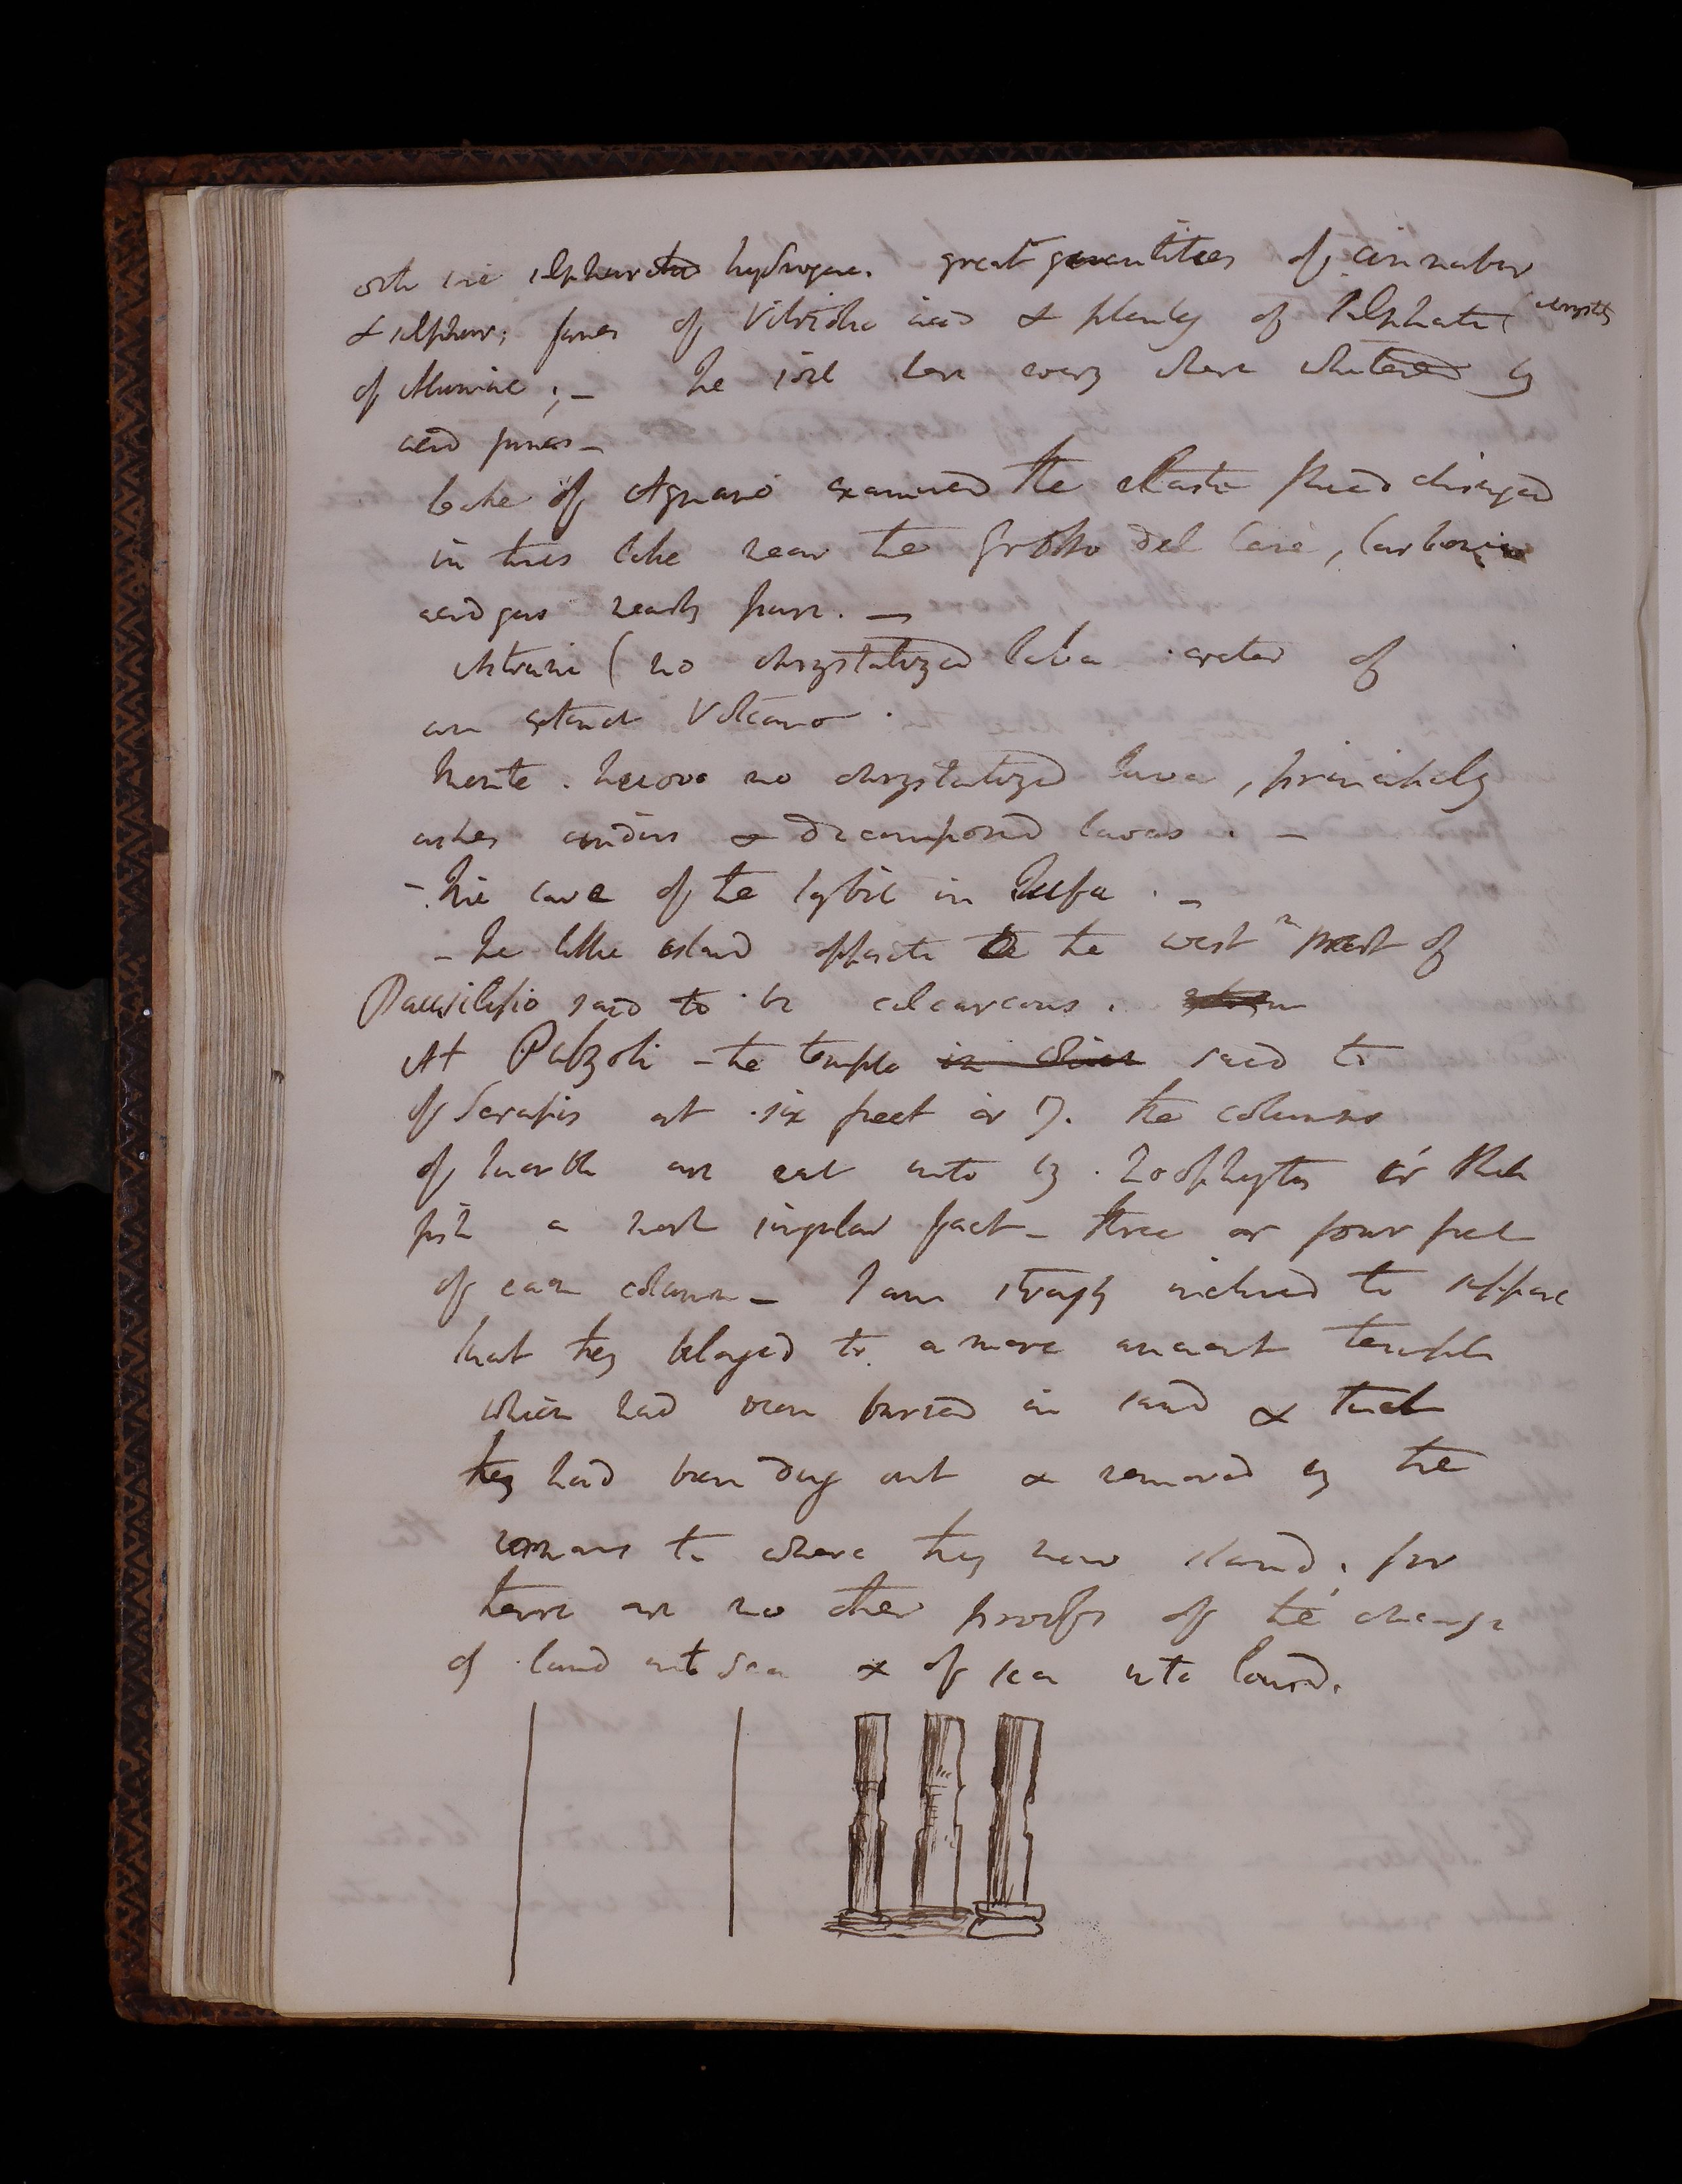 sulphuretted hydrogene. great quantities of cinnabar
& sulphur; fumes of Vitriolic acid & plenty of sulphate
of Alumine; – The soil here every where whitened by
acid fumes –
Lake of Agnano examined the elastic fluid disengaged
in this lake near the Grotto del Cane, Carbonic
acid gas nearly pure. –
Astruni (no chrystalized lava crater of
an extinct Volcano.
Monte. Nuovo no chrystalized lava, principally
ashes cinders & decomposed lavas. –
- The cave of the Sybil in Tufa. –
– The little island opposite to the west of
Pausilipio said to be calcareous.
At Puzzoli – the temple said to
of Serapis at six feet or 7. the columns
of marble are eat into by Zoophytes or shell
fish a most singular fact – three or four feet
of each column – I am strongly inclined to suppose
that they belonged to a more ancient temple
which had been buried in sand & that
they had been dug out & removed by the
romans to where they now stand, for
there are no other proofs of the change
of land into Sea & of sea into land.